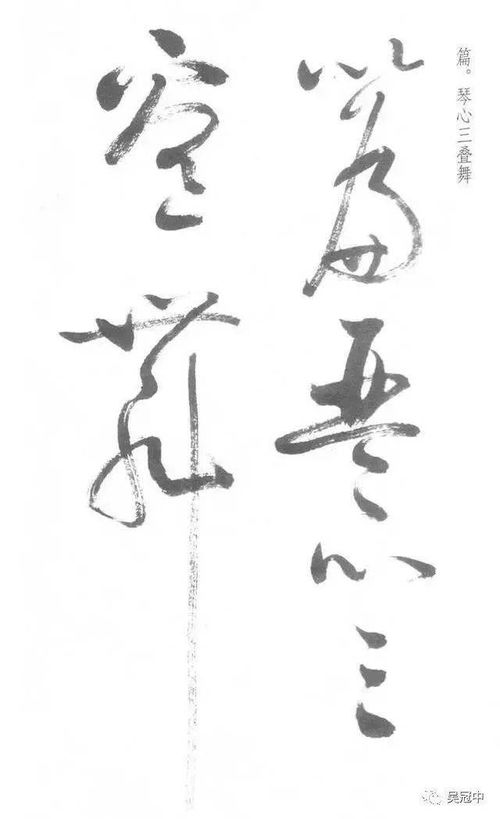 篇。琴心三叠舞
篇琴心三
叠舞
吴冠中